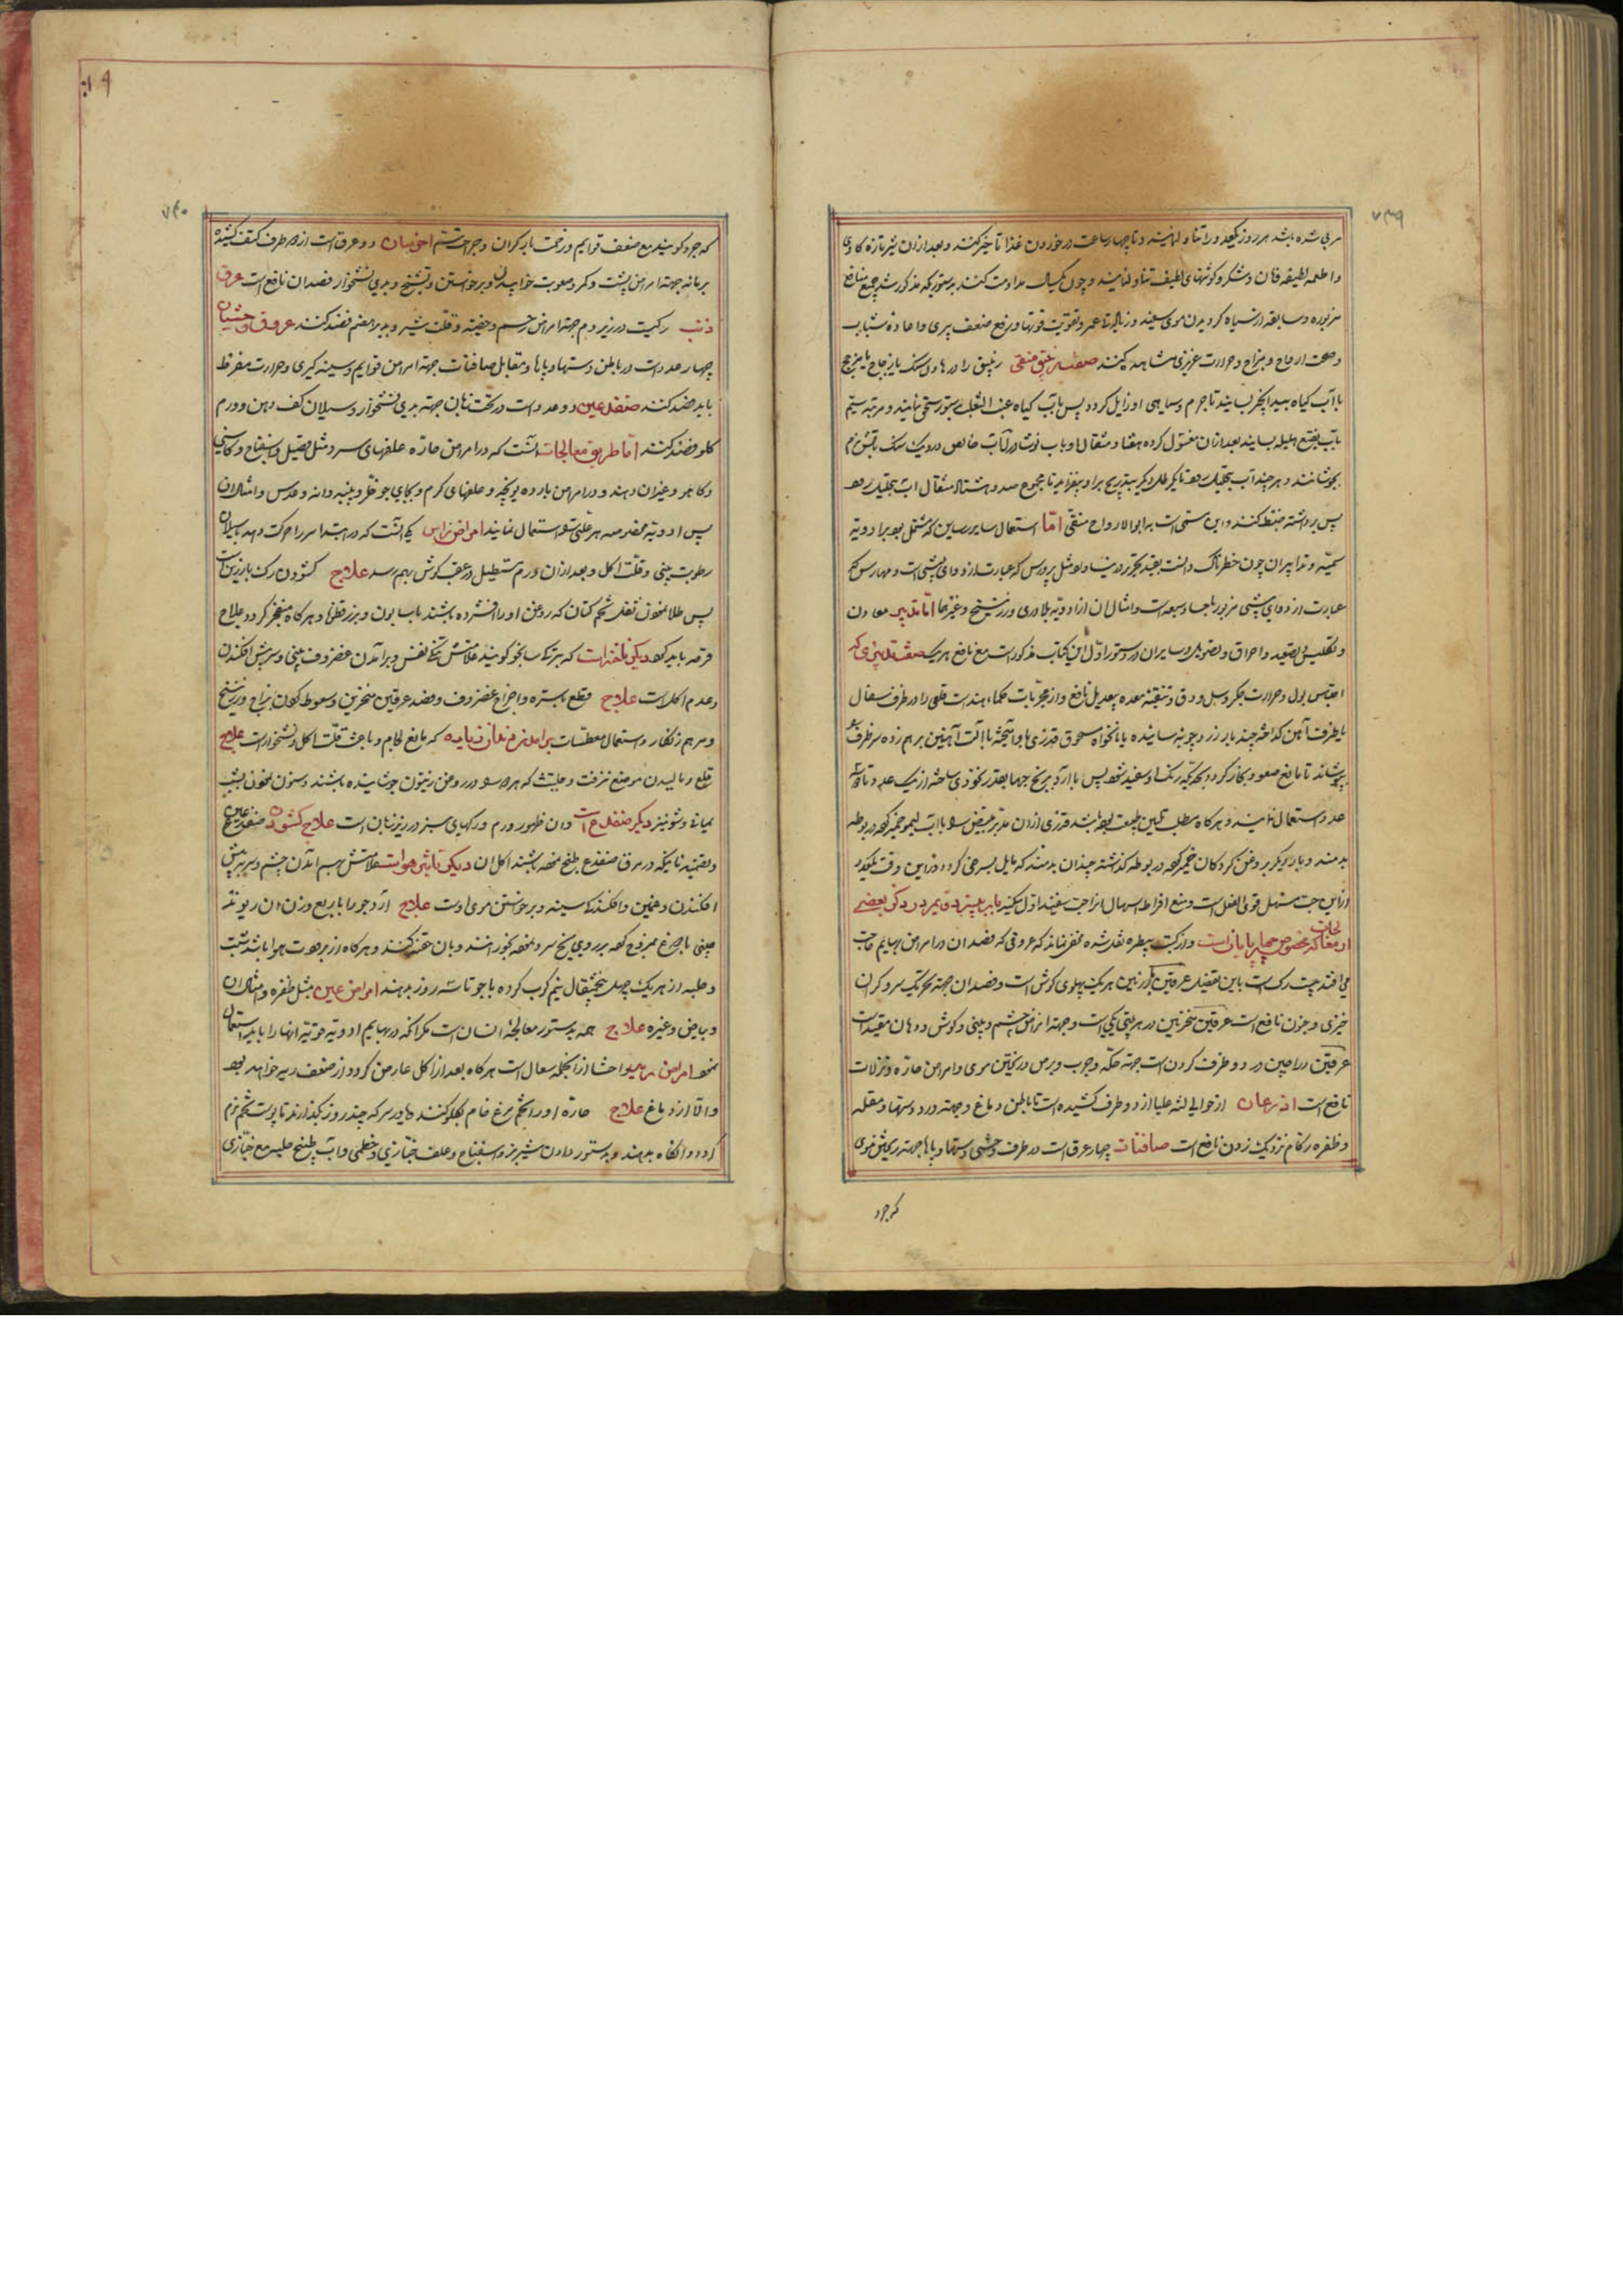 ۷۳۹
مربی شده باشد هر روز یکعدد را تناول نمایند و تا چهار ساعت در خوردن غذا تاخیر کنند و بعد از آن شیر تازه گاوی
و اطعمه لطیفه فان و شکر و گوشتهای لطیف تناول نمایند و چون یکسال مداومت کنند بدستوریکه مذکور شد جمیع منافع
مزبوره و سابقه از سیاه کردیدن موی سفید و زیادتی عمر و تقویت قوتها و رفع ضعف پیری و اعاده شباب
و صحت ارواح و مزاج و حرارت غریزی مشاهده کنند صفت زیبق منقی زیبق را در هاون سنک یا زجاج یا مزجج
با آب کیاه بید انجیر بسایند تا جرم و سیاهی او زایل کردد پس بآب کیاه عنب الثعلب بدستور سحق نمایند و مرتبه سیم
بآب نقیع هلیله بسایند بعد از آن مغسول کرده هفتاد مثقال او با آب نوشادر خالص در دیک سنک بآتش نرم
بجوشانند و هر چند آب بتحلیل رود تا یکرطل دیکر بتدریج بر او بیفزایند تا مجموع صد و هشتاد مثقال آب بتحلیل رود
پس برداشته ضبط کنند و این مسمی است به ابو الارواح منقی اما استعمال سایر رساین که مشتمل بود بر ادویه
سمیه و تدابیر آن چون خطرناک دانست بقید تحریر در نیاورد مثل پردرس که عبارت از دوای بیشی است و مهارس که
عبارت از دوای بیشی مزبور با جساد سبعه است و امثال آن از ادویه بلادری و زرنیخ و غیرها اما تدبیر معادن
و تکلیس و تصعید و احراق و تصویل و سایر آن در دستور اول این کتاب مذکور است مع نافع هر یک صفت قلعی که
احتباس بول و حرارت جکر و سل و دق و تنقیه معده بیعدیل نافع و از مجربات حکماء هند است قلعی را در ظرف سفال
یا ظرف آهن کداخته چند بار زردچوبه ساییده یا نانخواه مسحوق قدری با او آمیخته با آلت آهنین بر هم زده سر ظرف را
بپوشانند تا مانع صعود بخار کردد بحدیکه رنک او سفید شود پس با آرد برنج حبها بقدر نخودی ساخته از یک عدد تا سه
عدد استعمال نمایند و هر کاه مطلب تلیین طبیعت بوده باشد قدری از آن مدبر مبیض سوده با آب لیمو خمیر کرده در بوطه
بدمند و بار دیکر بروغن کردکان خمیر کرده در بوطه کذاشته چندان بدمند که مایل بسرخی کردد در این وقت یکقدر
از این حب مسهل قوی الفعل است و منع افراط اسهال او از حب سفید اول میکنند باب بیستم در ذکر بعضی
از معالجات که مخصوص چهارپایان است و از کتب بیطره نقل شده مخفی نماند که عروقی که فصد آن در امراض بهایم واجب
می افتد بیست رک است باین تفصیل عرقین اذنین هر یک پهلوی کوش است و فصد آن جهة تحریک سر و کران
خیزی و جنون نافع است عرقین منخرین در هر بینی یکی است و جهة امراض چشم و بینی و کوش و دهان مفید است
عرقین وداجین در دو طرف کردن است جهة حکه و جرب و برص و ریختن موی و امراض حاره و نزلات
نافع است اذرعان از حوالی لثه علیا از دو طرف کشیده است تا باطن دماغ و جهة درد دستها و مقله
و ظفره و زکام نزدیک زدن نافع است صافنات چهار عرق است در طرف وحشی دستها و پاها جهة ریختن موی
که جرد
۷۴۰
که جرد کویند مع ضعف قوایم و زحمت بار کران و جراحت سم اخذیان دو عرق است از هر طرف کتف کشیده
برانه جهة امراض پشت و کمر و صعوبت خوابیدن و برخواستن و تشنج و بدی نشخوار فصد آن نافع است عرق
ذنب رکیست در زیر دم جهة امراض رحم و خصیه و قلت شیر و بدی هضم فصد کنند عروق وحشیان
چهار عدد است در باطن دستها و پاها و مقابل صافنات جهة امراض قوایم و سینه کیری و حرارت مفرط
باید فصد کنند ضفدعین دو عدد است در تحت زبان جهة بدی نشخوار و سیلان کف دهن و ورم
کلو فصد کنند اما طریق معالجات آنست که در امراض حاره علفهای سرد مثل قصیل و اسفناج و کاسنی
و کاهو و غیر آن دهند و در امراض بارده یونجه و علفهای کرم و بجای جو خلر و پنبه دانه و عدس و امثال آن
پس ادویه مخصوصه هر علتی استعمال نمایند امراض راس یکی آنست که در ابتدا سر را حرکت دهد با سیلان
رطوبت بینی و قلت اکل و بعد از آن ورم مستطیل در عقب کوش بهم رسد علاج کشودن رک زیر زبان است
پس طلا نمودن ثفل تخم کتان که روغن او را افشرده باشند باب بون و بزر قطونا و هر کاه منفجر کردد علاج
قرحه باید کرد دیکر خلفه است که بترکی ساخو کویند علامتش تنکی نفس و برآمدن غضروف بینی و سر پیش افکندن
و عدم اکل است علاج قطع بشره و اخراج غضروف و فصد عرقین منخرین و سعوط کردن بزاج و زرنیخ
و مرهم زنکار و استعمال معطسات برآمدن دندان زیاده که مانع لجام و باعث قلت اکل و نشخوار است علاج
قلع و مالیدن موضع بزفت و حلتیت که هر دو در روغن زیتون جوشانیده باشند و سنون نمودن بشب
یمانی و شونیز دیکر ضفدع است و آن ظهور ورم و رکهای سبز در زیر زبان است علاج کشودن ضفدعین
و تضمید نانیکه در مرق ضفدع طبخ نموده باشند اکل آن دیکر تاثیر هواست علامتش برآمدن چشم و سر در پیش
افکندن و غمکین و افکندن سینه و برخواستن موی اوست علاج آرد جو را با ربع وزن آن ریوند
چینی با صمغ ممزوج کرده بر روی یخ سرد نموده بخورانند و بآن حقنه کنند و هر کاه از برودت هوا باشد شبت
و حلبه از هر یک چهل و پنج مثقال نیم کوب کرده با جو تا سه روز بدهند امراض عین مثل ظفره و امثال آن
و بیاض و غیره علاج همه بدستور معالجه انسان است مکر آنکه در بهایم ادویه قویه آنها را باید استعمال
نمود امراض ریه و احشا از آنجمله سعال است هر کاه بعد از اکل عارض کردد از ضعف ریه خواهد بود
و الا از دماغ علاج حاره او را تخم مرغ خام بکلو کنند که در سرکه چند روز بکذارند تا پوست تخم نرم
کردد و انکاه بدهند و بدستور دادن شیر بز و اسفناج و علف خبازی و خطمی و آب طبیخ حلبه مع خبازی